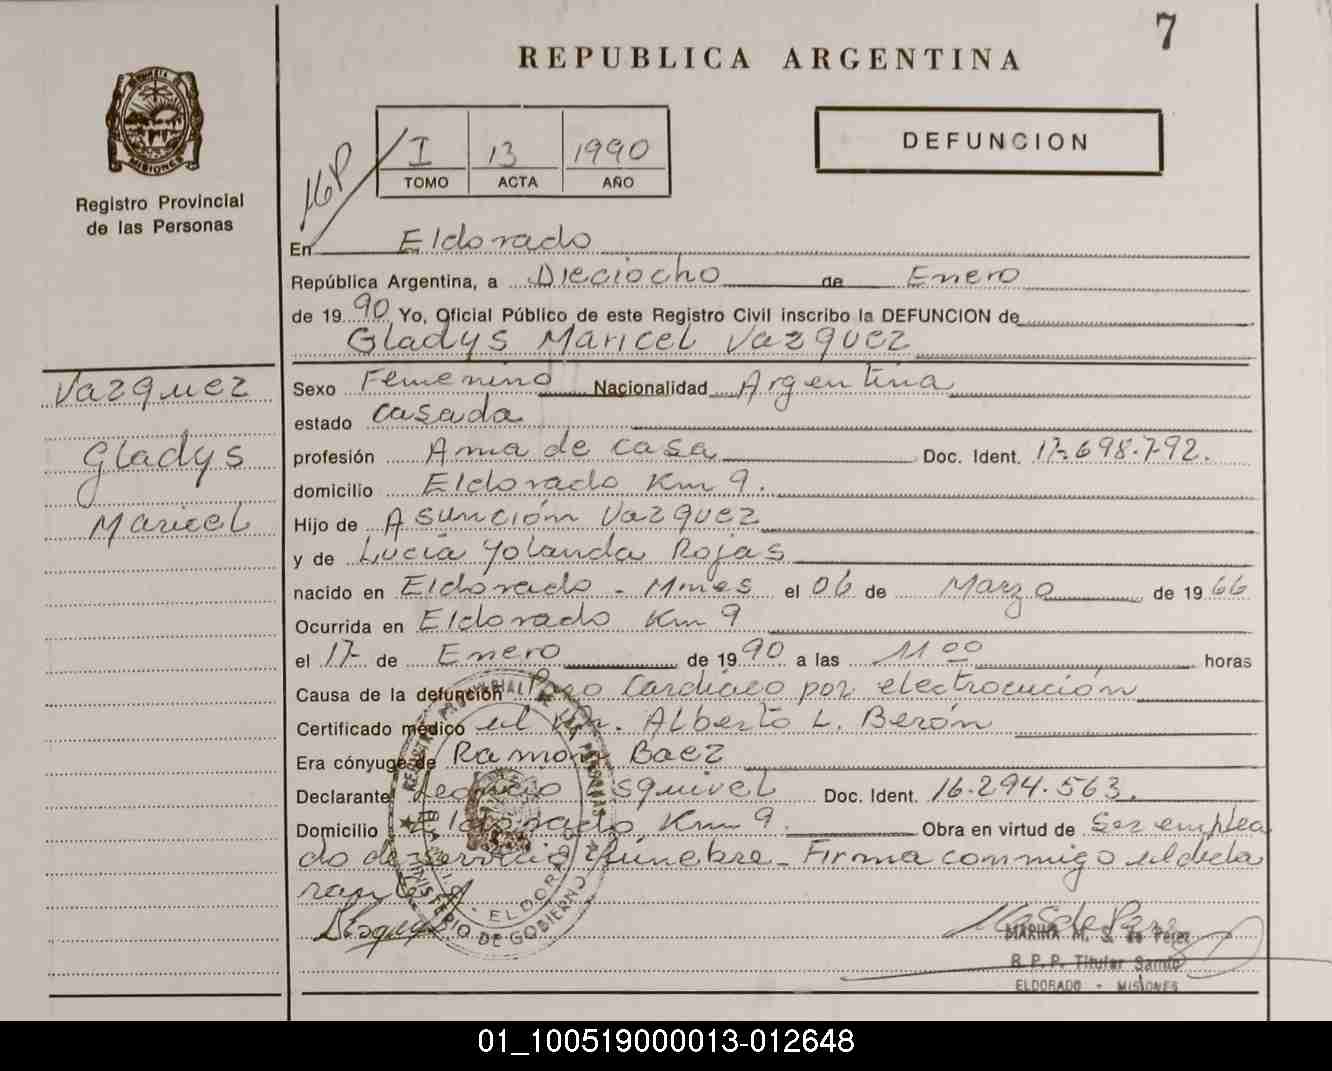 7
REPUBLICA ARGENTINA
PROVINCIA DE MISIONES
Registro Provincial
de las Personas
I 13 1990
TOMO ACTA AÑO
DEFUNCION
En Eldorado
República Argentina, a Dieciocho de Enero
de 1990 Yo, Oficial Público de este Registro Civil inscribo la DEFUNCION de
Gladys Maricel Vazquez
Vazquez
Gladys
Maricel
Sexo Femenino Nacionalidad Argentina
estado casada
profesión Ama de casa Doc. Ident. 17.698.792.
domicilio Eldorado Km 9.
Hijo de Asunción Vazquez
y de Lucia Yolanda Rojas
nacido en Eldorado - Mnes el 06 de Marzo de 1966
Ocurrida en Eldorado Km 9
el 17 de Enero de 1990 a las 11 00 horas
Causa de la defunción Paro Cardiáco por electrocución
Certificado médico el Dr. Alberto L. Berón
Era cónyuge de Ramon Baez
Declarante Esquivel Doc. Ident. 16.294.563.
Domicilio Eldorado Km 9. Obra en virtud de ser emplea
do de servicio fúnebre - Firma conmigo el decla
rante
REGISTRO PROVINCIAL DE LAS PERSONAS
MINISTERIO DE GOBIERNO
ELDORADO
MARINA M. S. de Perez
R. P. P. Titular
ELDORADO - MISIONES
01_100519000013-012648